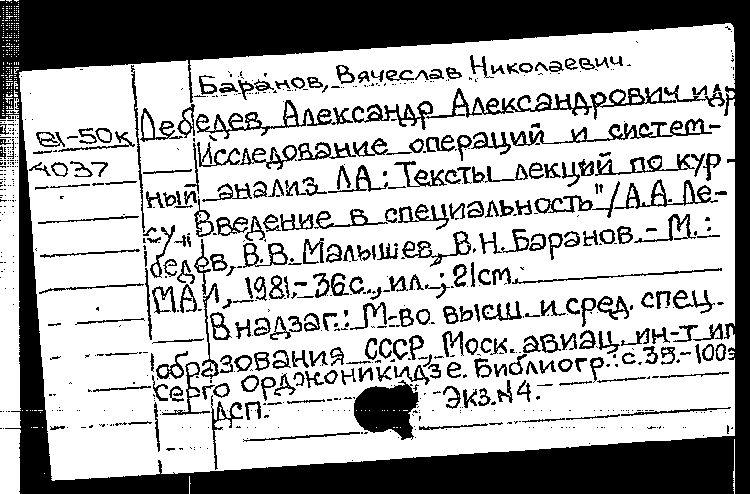 Баранов, Вячеслав Николаевич.
Лебедев, Александр Александрович и др
81-50к
4037
Исследование операций и систем-
ный анализ ЛА: Тексты лекций по кур-
су „Введение в специальность"/А.А. Ле-
бедев, В.В. Малышев, В.Н. Баранов.- М.:
МАИ, 1981.- 36с., ил.; 21см.
В надзаг.: М-во высш. и сред. спец.
образования СССР, Моск. авиац. ин-т им
Серго Орджоникидзе. Библиогр.: с.35.-100э
ДСП. Экз.№4.